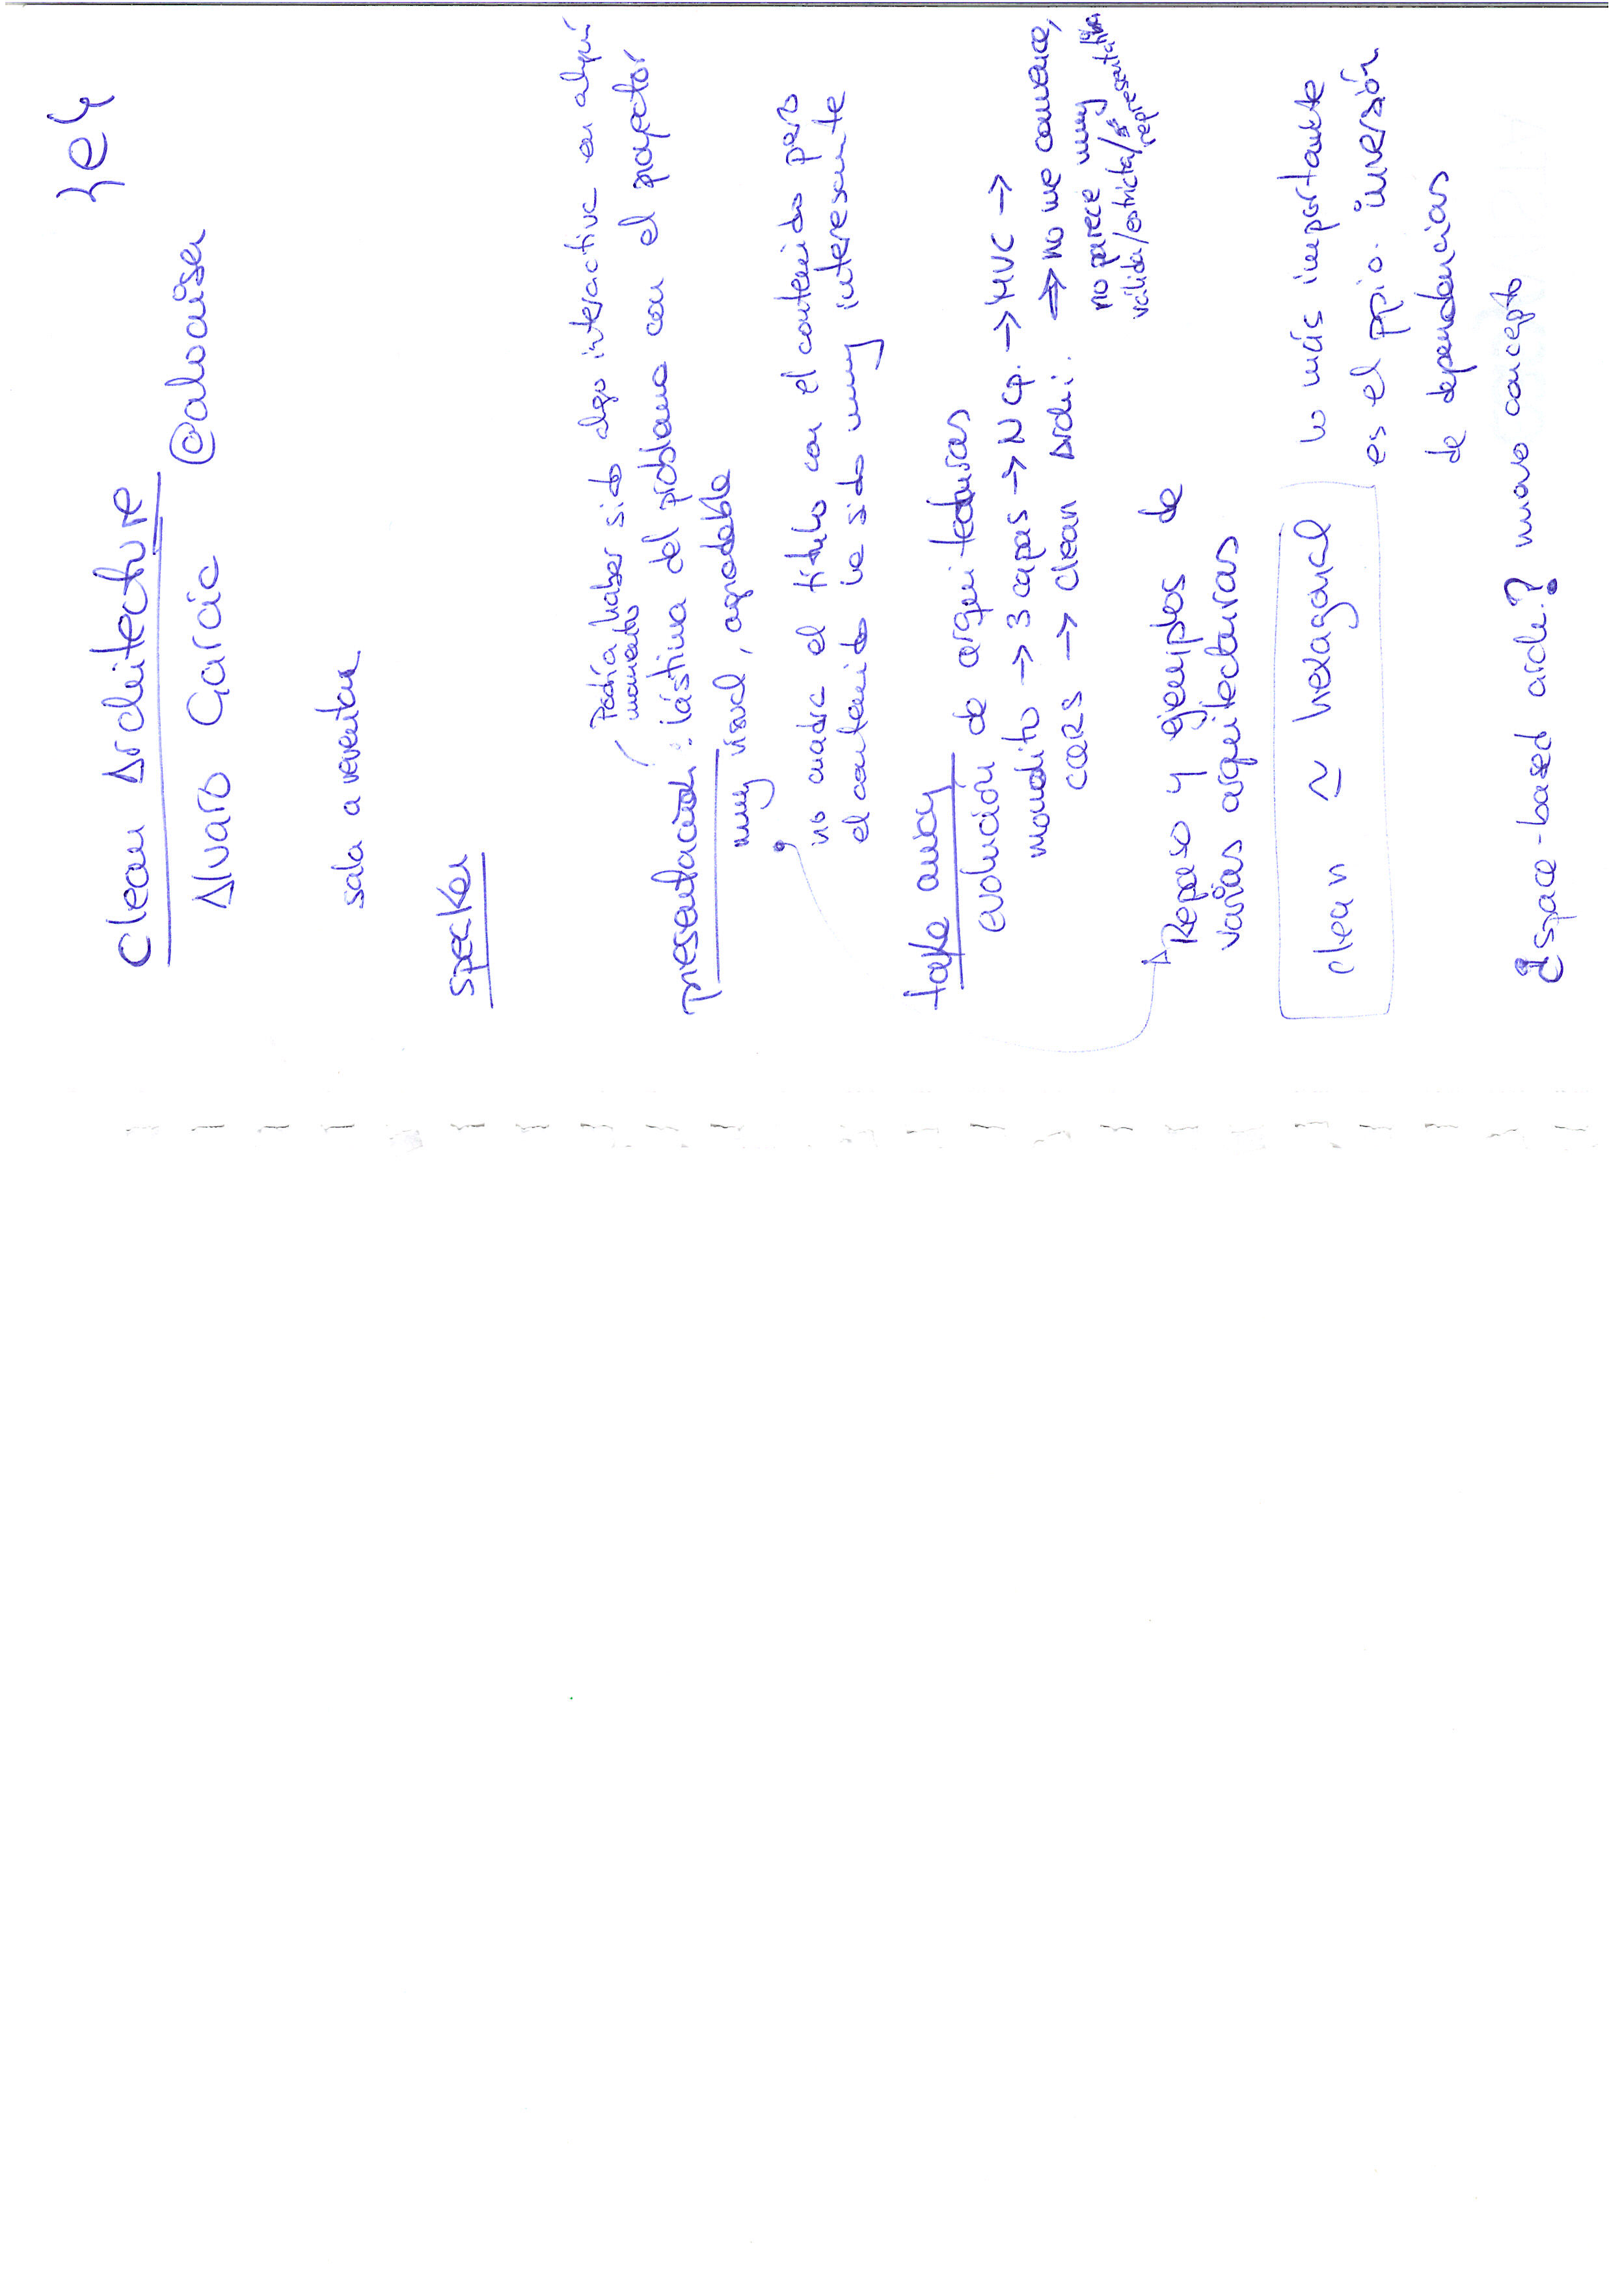 Clean Architecture
Alvaro García @alvaisa
sala a reventar
speaker
Podría haber sido algo interactiva en algún
momento
presentación : lástima del problema con el proyector
muy visual, agradable
no cuadra el título con el contenido pero
el contenido ha sido muy interesante
take away
evolución de arquitecturas
monolito → 3 capas → N cp. → MVC →
CQRS → Clean Archi. ⇒ no me convence,
no parece muy
válida/estricta/
representativa
Repaso y ejemplos de
varias arquitecturas
clean ≃ hexagonal
lo más importante
es el ppio. inversión
de dependencias
¿space-based arch.? nuevo concepto